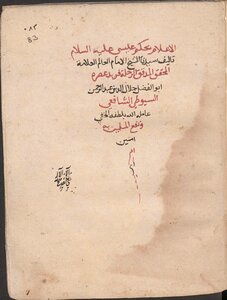 ٠٨٣
83
الاعلام بحكم عيسى عليه السلام
تاليف سيدنا الشيخ الامام العالم العلامة
المحقق المدقق الرحلة فريد عصره
ابو الفضل جلال الدين عبد الرحمن
السيوطى الشافعي
عامله الله بلطفه الخفي
ونفع المسلمين به
امين